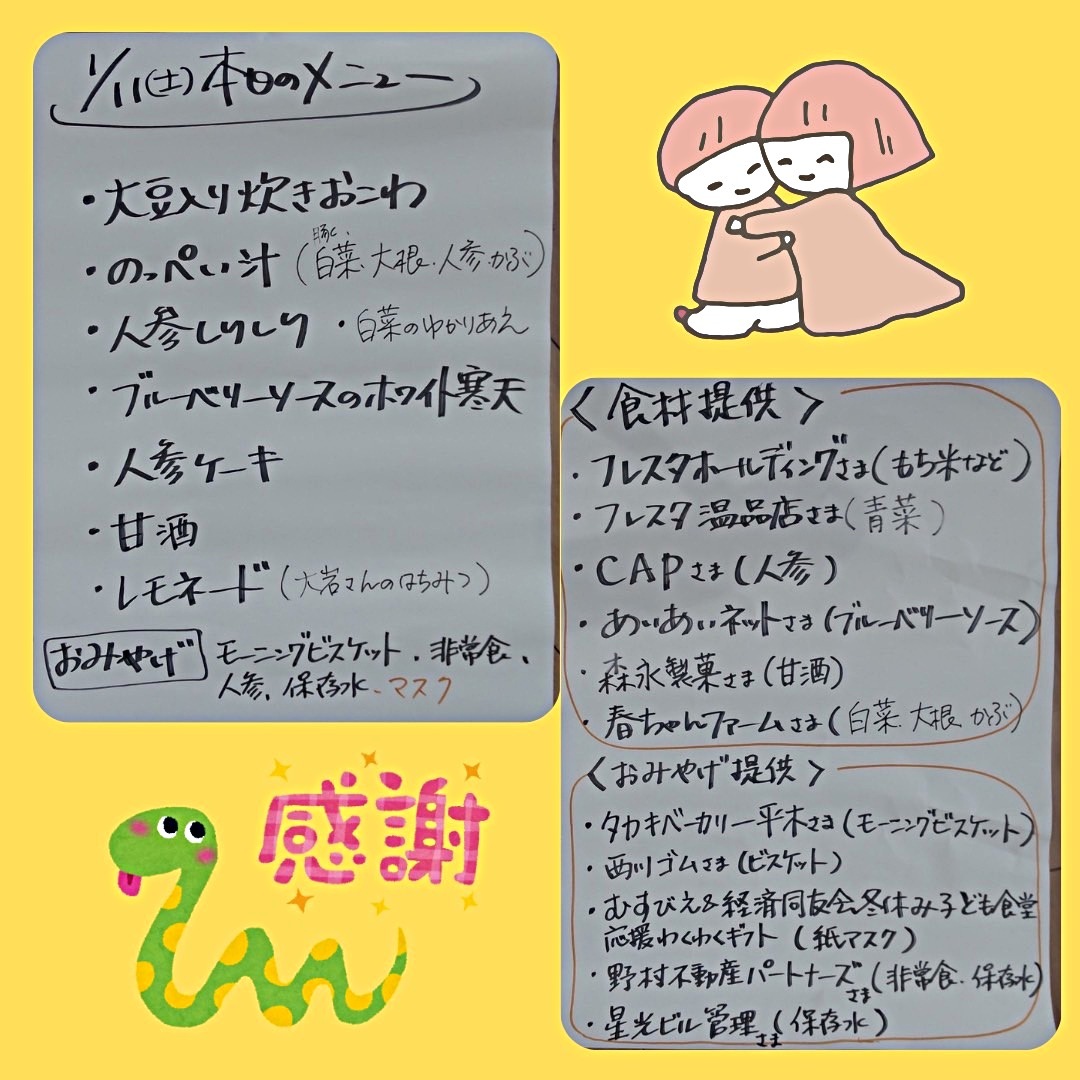 1/11(土)本日のメニュー
・大豆入り炊きおこわ
・のっぺい汁(豚、白菜、大根、人参、かぶ)
・人参しりしり ・白菜のゆかりあえ
・ブルーベリーソースのホワイト寒天
・人参ケーキ
・甘酒
・レモネード(大岩さんのはちみつ)
おみやげ モーニングビスケット、非常食、
人参、保存水、マスク
感謝
<食材提供>
・フレスタホールディングさま(もち米など)
・フレスタ温品店さま(青菜)
・CAPさま(人参)
・あいあいネットさま(ブルーベリーソース)
・森永製菓さま(甘酒)
・春ちゃんファームさま(白菜、大根、かぶ)
<おみやげ提供>
・タカキベーカリー平木さま(モーニングビスケット)
・西川ゴムさま(ビスケット)
・むすびえ&経済同友会冬休み子ども食堂
応援わくわくギフト(紙マスク)
・野村不動産パートナーズさま(非常食、保存水)
・星光ビル管理さま(保存水)